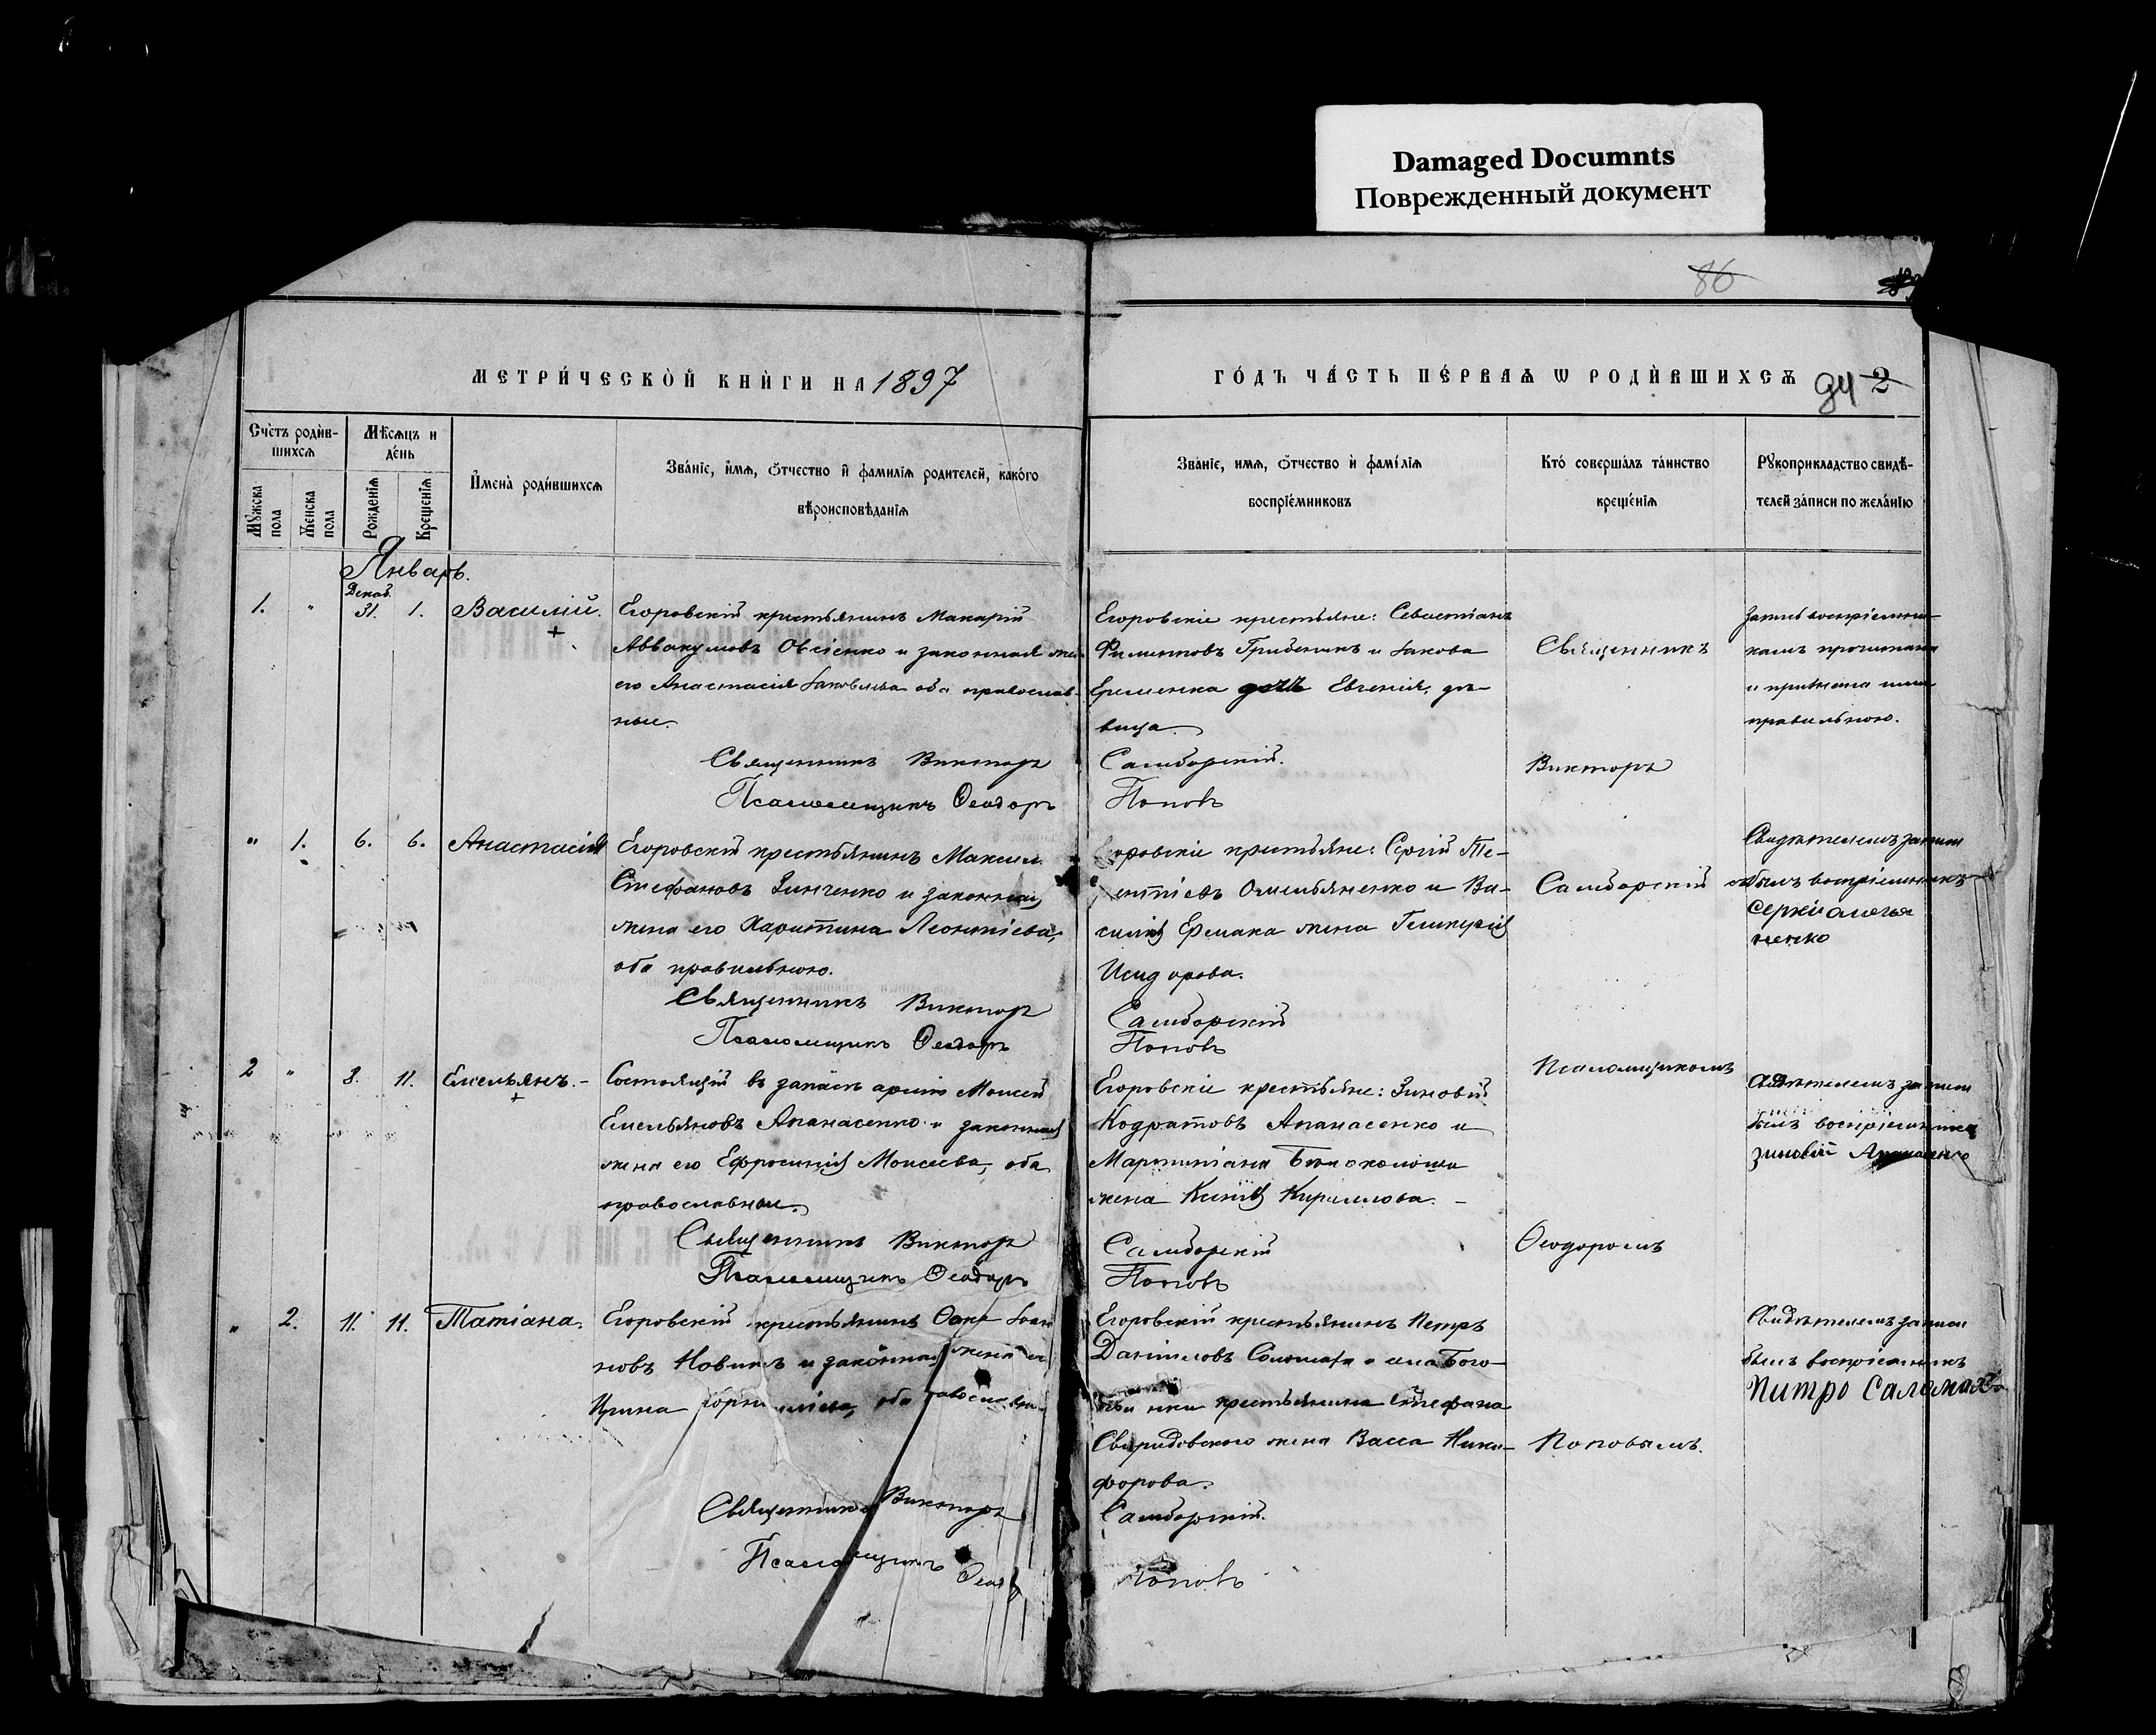 Damaged Documnts
Поврежденный документ
86
МЕТРИ́ЧЕСКОЙ КНИ́ГИ НА 1897
ГО́ДЪ ЧА́СТЬ ПЕ́РВАѦ Ѡ РОДИ́ВШИХСѦ
94 2
Сче́тъ роди́в-
шихсѧ
Мѣсѧцъ и
де́нь
Мꙋжска
пола
Женска
пола
Рожденїѧ
Крещенїѧ
И҆мена̀ роди́вшихсѧ
Зва́нїе, и҆́мѧ, ѻ҆́тчество и҆ фамилїѧ родителей, како́го
вѣроисповѣданїѧ
Зва́нїе, имѧ, ѻ҆́тчество и҆ фамі́лїѧ
воспрїе́мниковъ
Кто́ соверша́лъ та́инство
креще́нїѧ
Рꙋкоприкладство свидѣ-
телей за́писи по жела́нїю
Январь.
Декаб.
1. " 31. 1. Василій.
Егоровскій крестьянинъ Макарій
Аввакумовъ Овсіенко и законная жена
его Анастасія Іаковлева оба православ-
ные.
Священникъ Викторъ
Псаломщикъ Ѳеодоръ
Егоровскіе крестьяне: Севастіанъ
Филипповъ Грибеникъ и Іакова
Еременка дочь Евгенія, дѣ-
вица.
Самборскій.
Поповъ
Священникъ
Викторъ
Запись воспріемни-
камъ прочитана
и признана ими
правильною.
" 1. 6. 6. Анастасія
Егоровскій крестьянинъ Максим
Стефановъ Зинченко и законная
жена его Харитина Леонтіева,
оба правильною.
Священникъ Викторъ
Псаломщикъ Ѳеодоръ
оровскіе крестьяне: Сергій Те-
ентіевъ Омельяненко и Ва-
силія Ермака жена Гликерія
Исидорова.
Самборскій
Поповъ
Самборскій съ
Псаломщикомъ
Свидѣтелемъ записи
былъ воспріемникъ
Сергій Омелья
ненко
2 " 8. 11. Емельянъ.-
Состоящій въ запасѣ арміи Моисей
Емельяновъ Апанасенко и законная
жена его Ефросинія Моисеева, оба
православные.
Священникъ Викторъ
Псаломщикъ Ѳеодоръ
Егоровскіе крестьяне: Зиновій
Кодратовъ Апанасенко и
Мартиніана
жена Ксенія Кириллова. -
Самборскій
Поповъ
Ѳеодоромъ
Свидѣтелемъ записи
былъ воспріемникъ
Зиновій Апанасенко
" 2. 11. 11. Татіана.
Егоровскій крестьянинъ Ѳока Іоан
новъ Новикъ и законная жена его
Ирина Корниліева, оба православн.
Священникъ Викторъ
Псаломщикъ Ѳеодоръ
Егоровскій крестьянинъ Петръ
Даніиловъ Соломаха и села Бого-
крестьянина Стефана
Свиридовского жена Васса Ники-
форова.
Самборскій.
Поповъ
Поповымъ.
Свидѣтелемъ записи
былъ воспріемникъ
Питро Саломаха